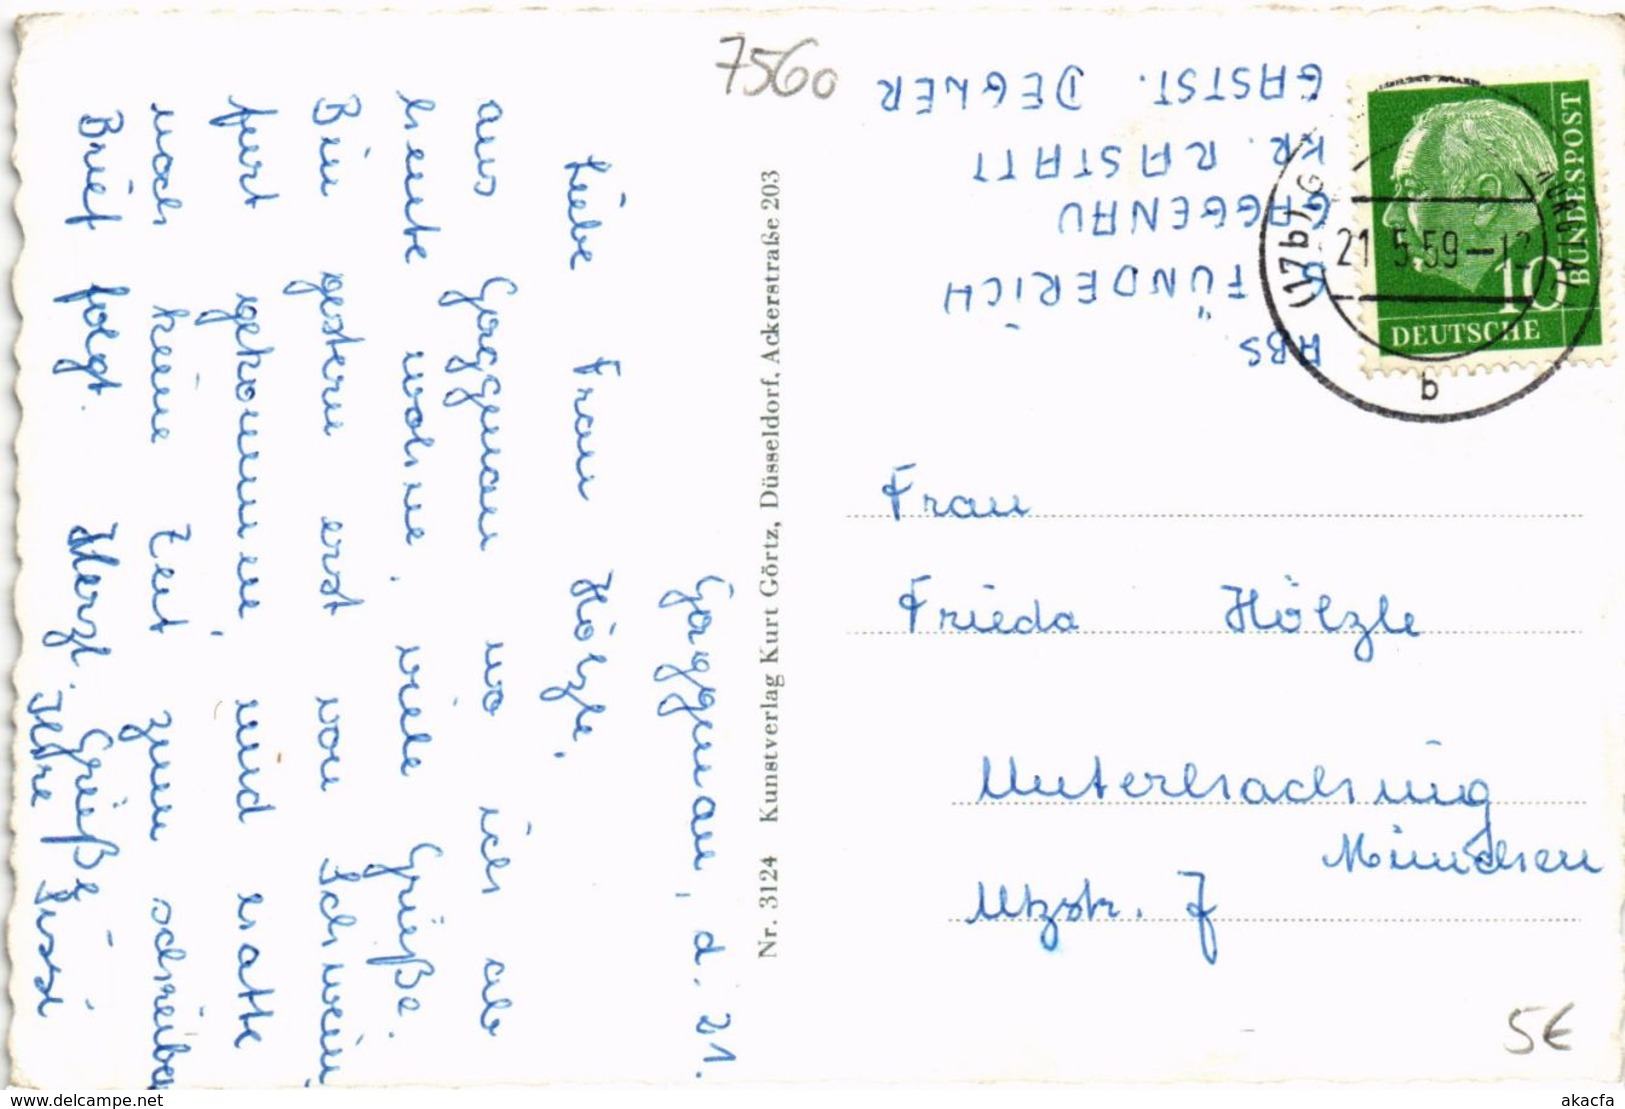 Gaggenau, d. 21.
Liebe Frau Hölzle,
aus Gaggenau wo ich ab
heute wohne, viele Grüße.
Bin gestern erst von Schwein
furt gekommen, und hatte
noch keine Zeit zum schreiben
Brief folgt. Herzl. Grüße
Ihre Susi
Nr. 3124 Kunstverlag Kurt Görtz, Düsseldorf, Ackerstraße 203
7560
ABS
G. FÜNDERICH
GAGGENAU
KR. RASTATT
GASTST. DEGLER
(17b) G
21.5.59-12
b
10
DEUTSCHE
BUNDESPOST
Frau
Frieda Hölzle
Unterhaching
München
Utzstr. 7
5€
www.delcampe.net
akacfa